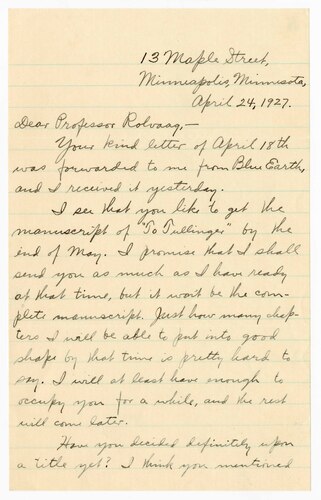 13 Maple Street,
Minneapolis, Minnesota,
April 24, 1927.
Dear Professor Rolvaag,—
Your kind letter of April 18th
was forwarded to me from Blue Earth,
and I received it yesterday.
I see that you like to get the
manuscript of "To Tullinger" by the
end of May. I promise that I shall
send you as much as I have ready
at that time, but it won't be the com-
plete manuscript. Just how many chap-
ters I will be able to put into good
shape by that time is pretty hard to
say. I will at least have enough to
occupy you for a while, and the rest
will come later.
Have you decided definitely upon
a title yet? I think you mentioned